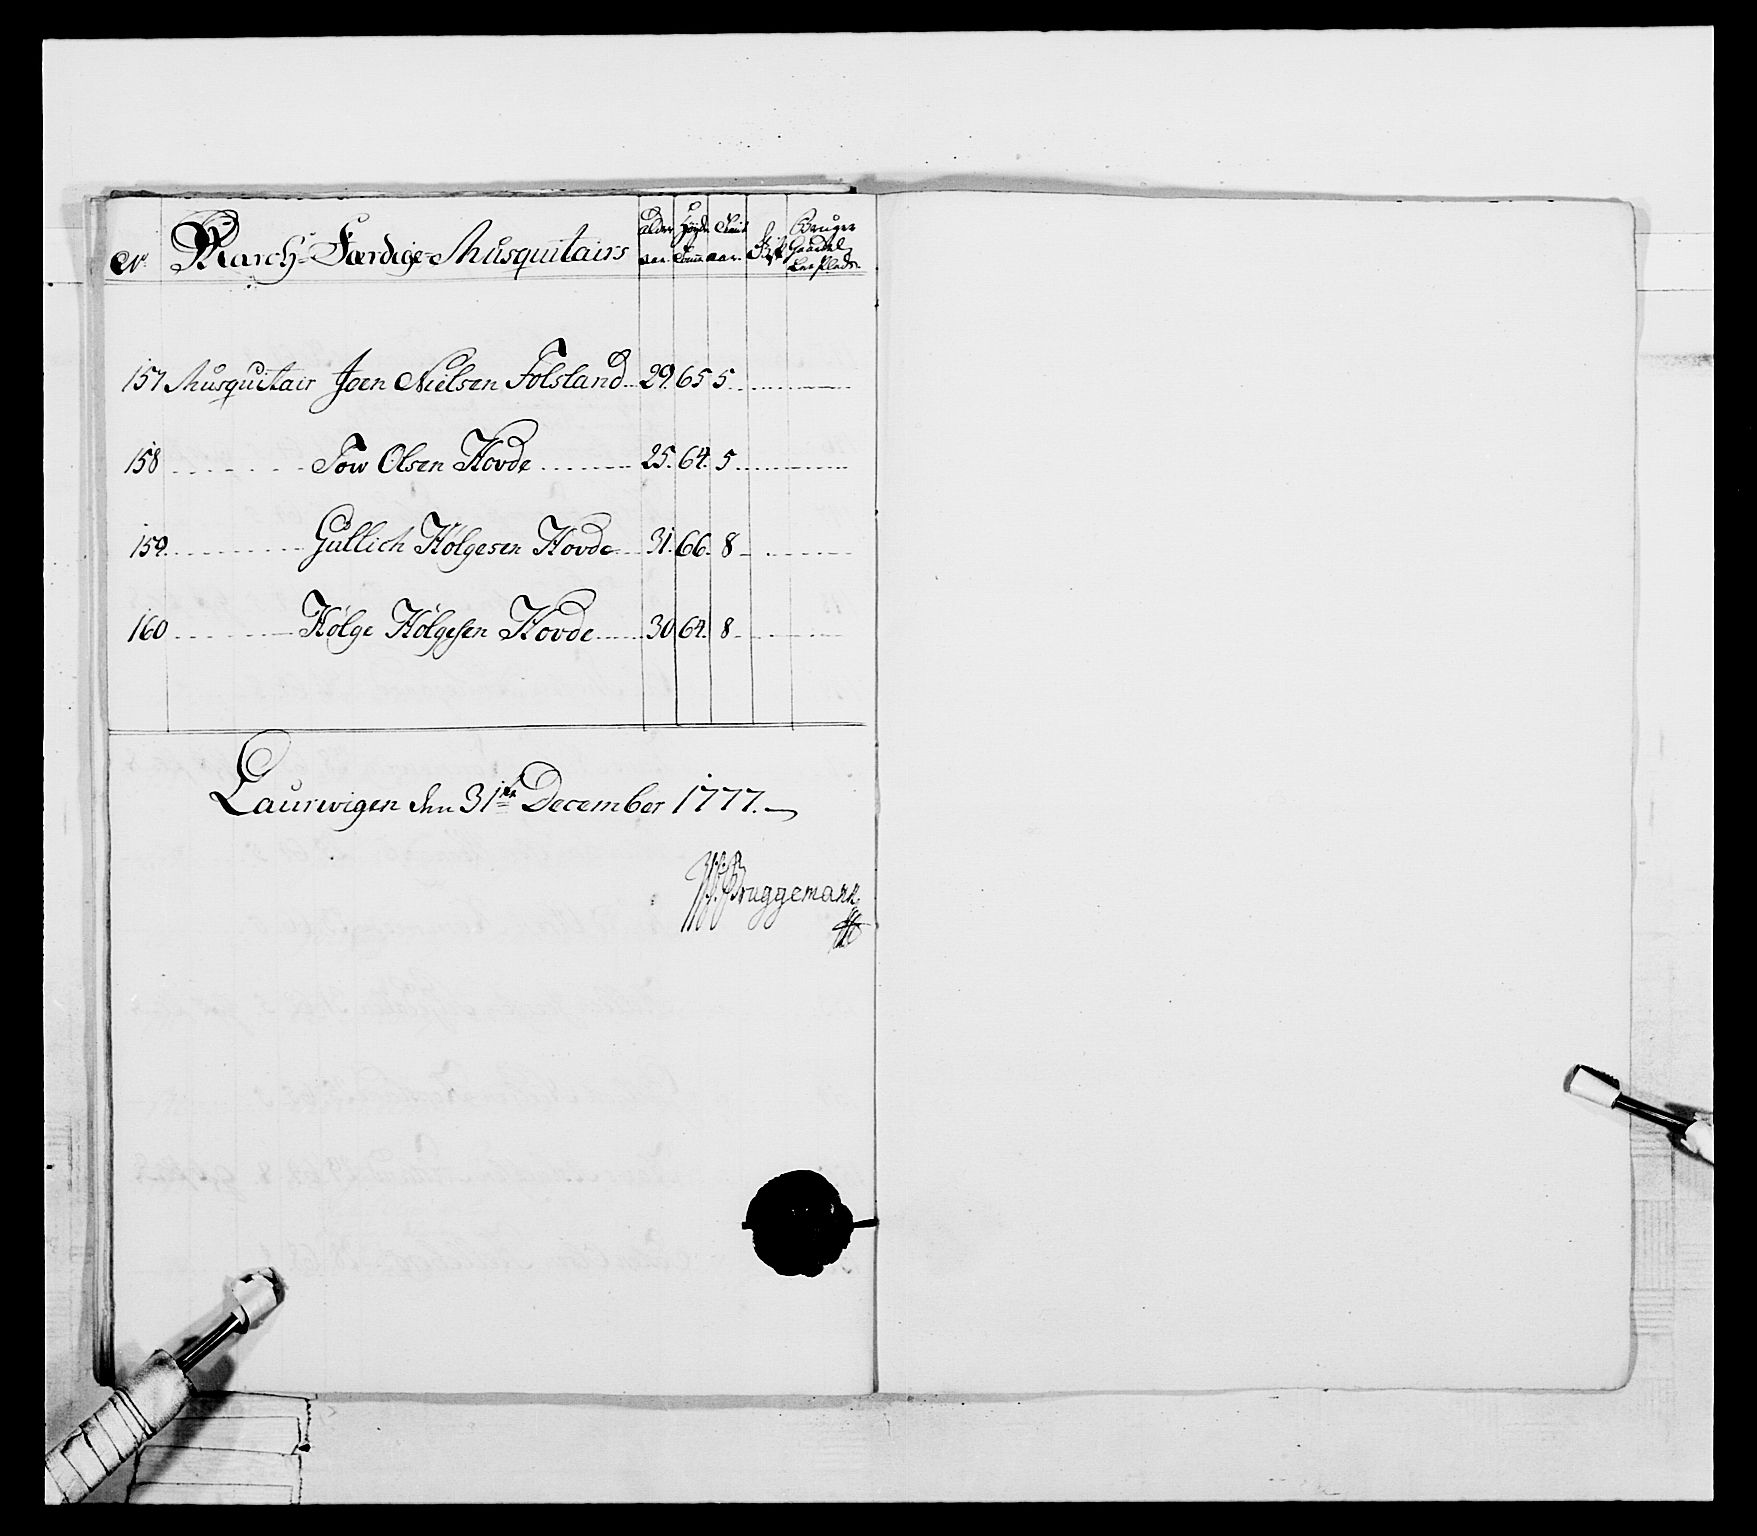 No. March-Færdige Musquitairs Alder aar. Høyde Tomer Tient aar. Gift Bruger Gaardel. Ler Plads.
157 Musquitair Joen Nielsen Folsland 29. 65 5
158 Tow Olsen Hovde 25. 64. 5
159. Gullich Hølgesen Hovde 31. 66. 8
160 Hølge Hølgesen Hovde 30 64. 8
Laurwigen den 31te December 1777.
Bruggemann